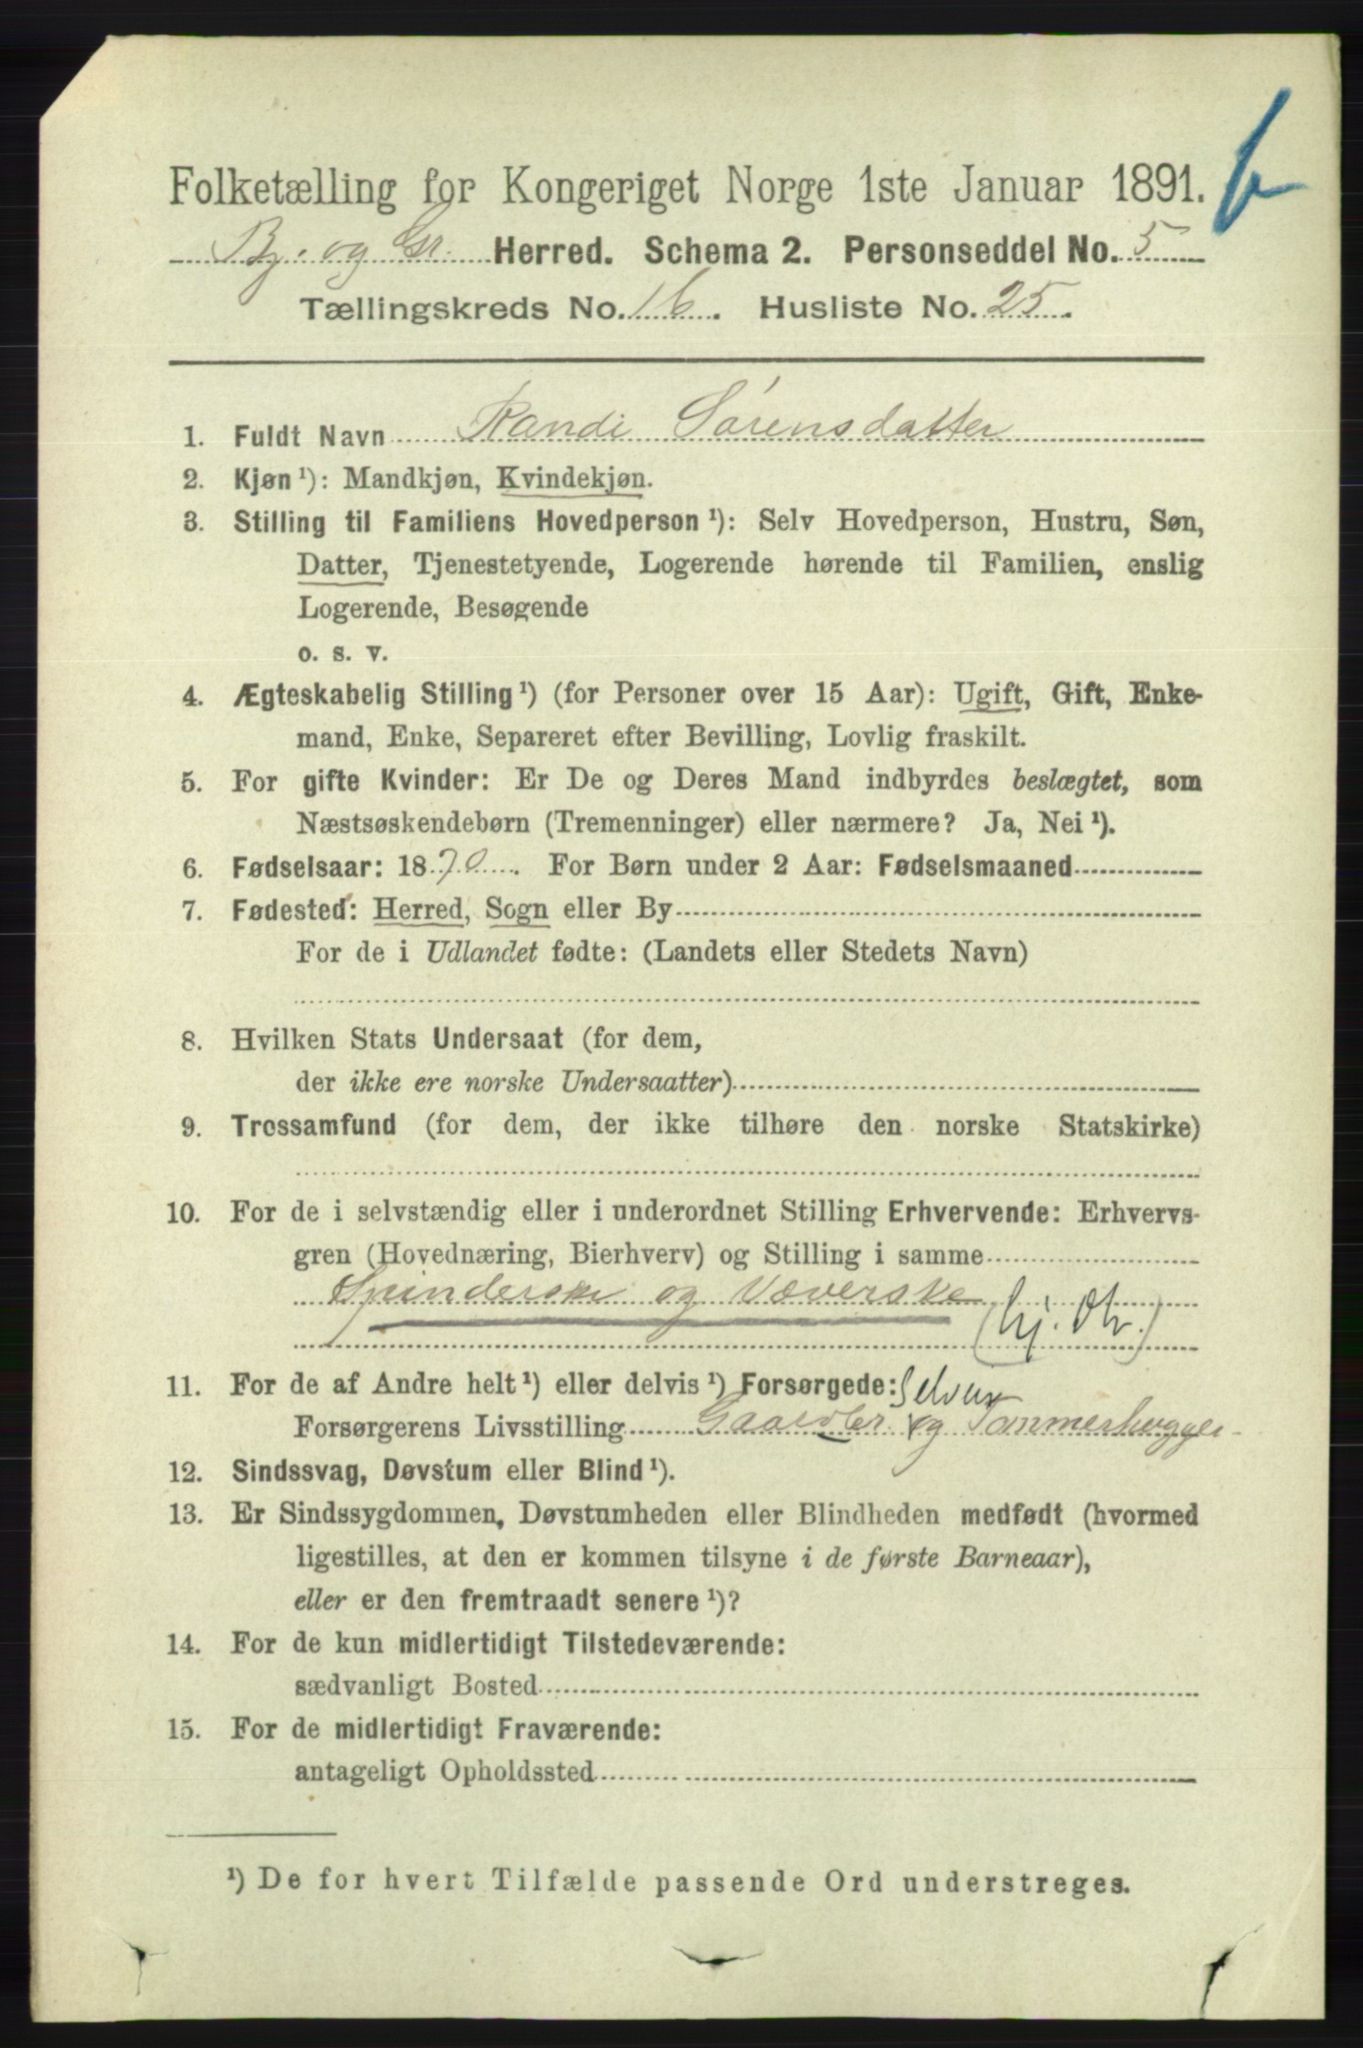 b
Folketælling for Kongeriget Norge 1ste Januar 1891.
By. og Gr. Herred. Schema 2. Personseddel No. 5
Tællingskreds No. 16. Husliste No. 25.
1. Fuldt Navn Randi Sørensdatter
2. Kjøn ¹): Mandkjøn, Kvindekjøn.
3. Stilling til Familiens Hovedperson ¹): Selv Hovedperson, Hustru, Søn,
Datter, Tjenestetyende, Logerende hørende til Familien, enslig
Logerende, Besøgende
o. s. v.
4. Ægteskabelig Stilling ¹) (for Personer over 15 Aar): Ugift, Gift, Enke-
mand, Enke, Separeret efter Bevilling, Lovlig fraskilt.
5. For gifte Kvinder: Er De og Deres Mand indbyrdes beslægtet, som
Næstsøskendebørn (Tremenninger) eller nærmere? Ja, Nei ¹).
6. Fødselsaar: 1870. For Børn under 2 Aar: Fødselsmaaned
7. Fødested: Herred, Sogn eller By
For de i Udlandet fødte: (Landets eller Stedets Navn)
8. Hvilken Stats Undersaat (for dem,
der ikke ere norske Undersaatter)
9. Trossamfund (for dem, der ikke tilhøre den norske Statskirke)
10. For de i selvstændig eller i underordnet Stilling Erhvervende: Erhvervs-
gren (Hovednæring, Bierhverv) og Stilling i samme
Spinderske og Væverske
11. For de af Andre helt ¹) eller delvis ¹) Forsørgede:
Forsørgerens Livsstilling og Tømmerhugger
12. Sindssvag, Døvstum eller Blind ¹).
13. Er Sindssygdommen, Døvstumheden eller Blindheden medfødt (hvormed
ligestilles, at den er kommen tilsyne i de første Barneaar),
eller er den fremtraadt senere ¹)?
14. For de kun midlertidigt Tilstedeværende:
sædvanligt Bosted
15. For de midlertidigt Fraværende:
antageligt Opholdssted
¹) De for hvert Tilfælde passende Ord understreges.